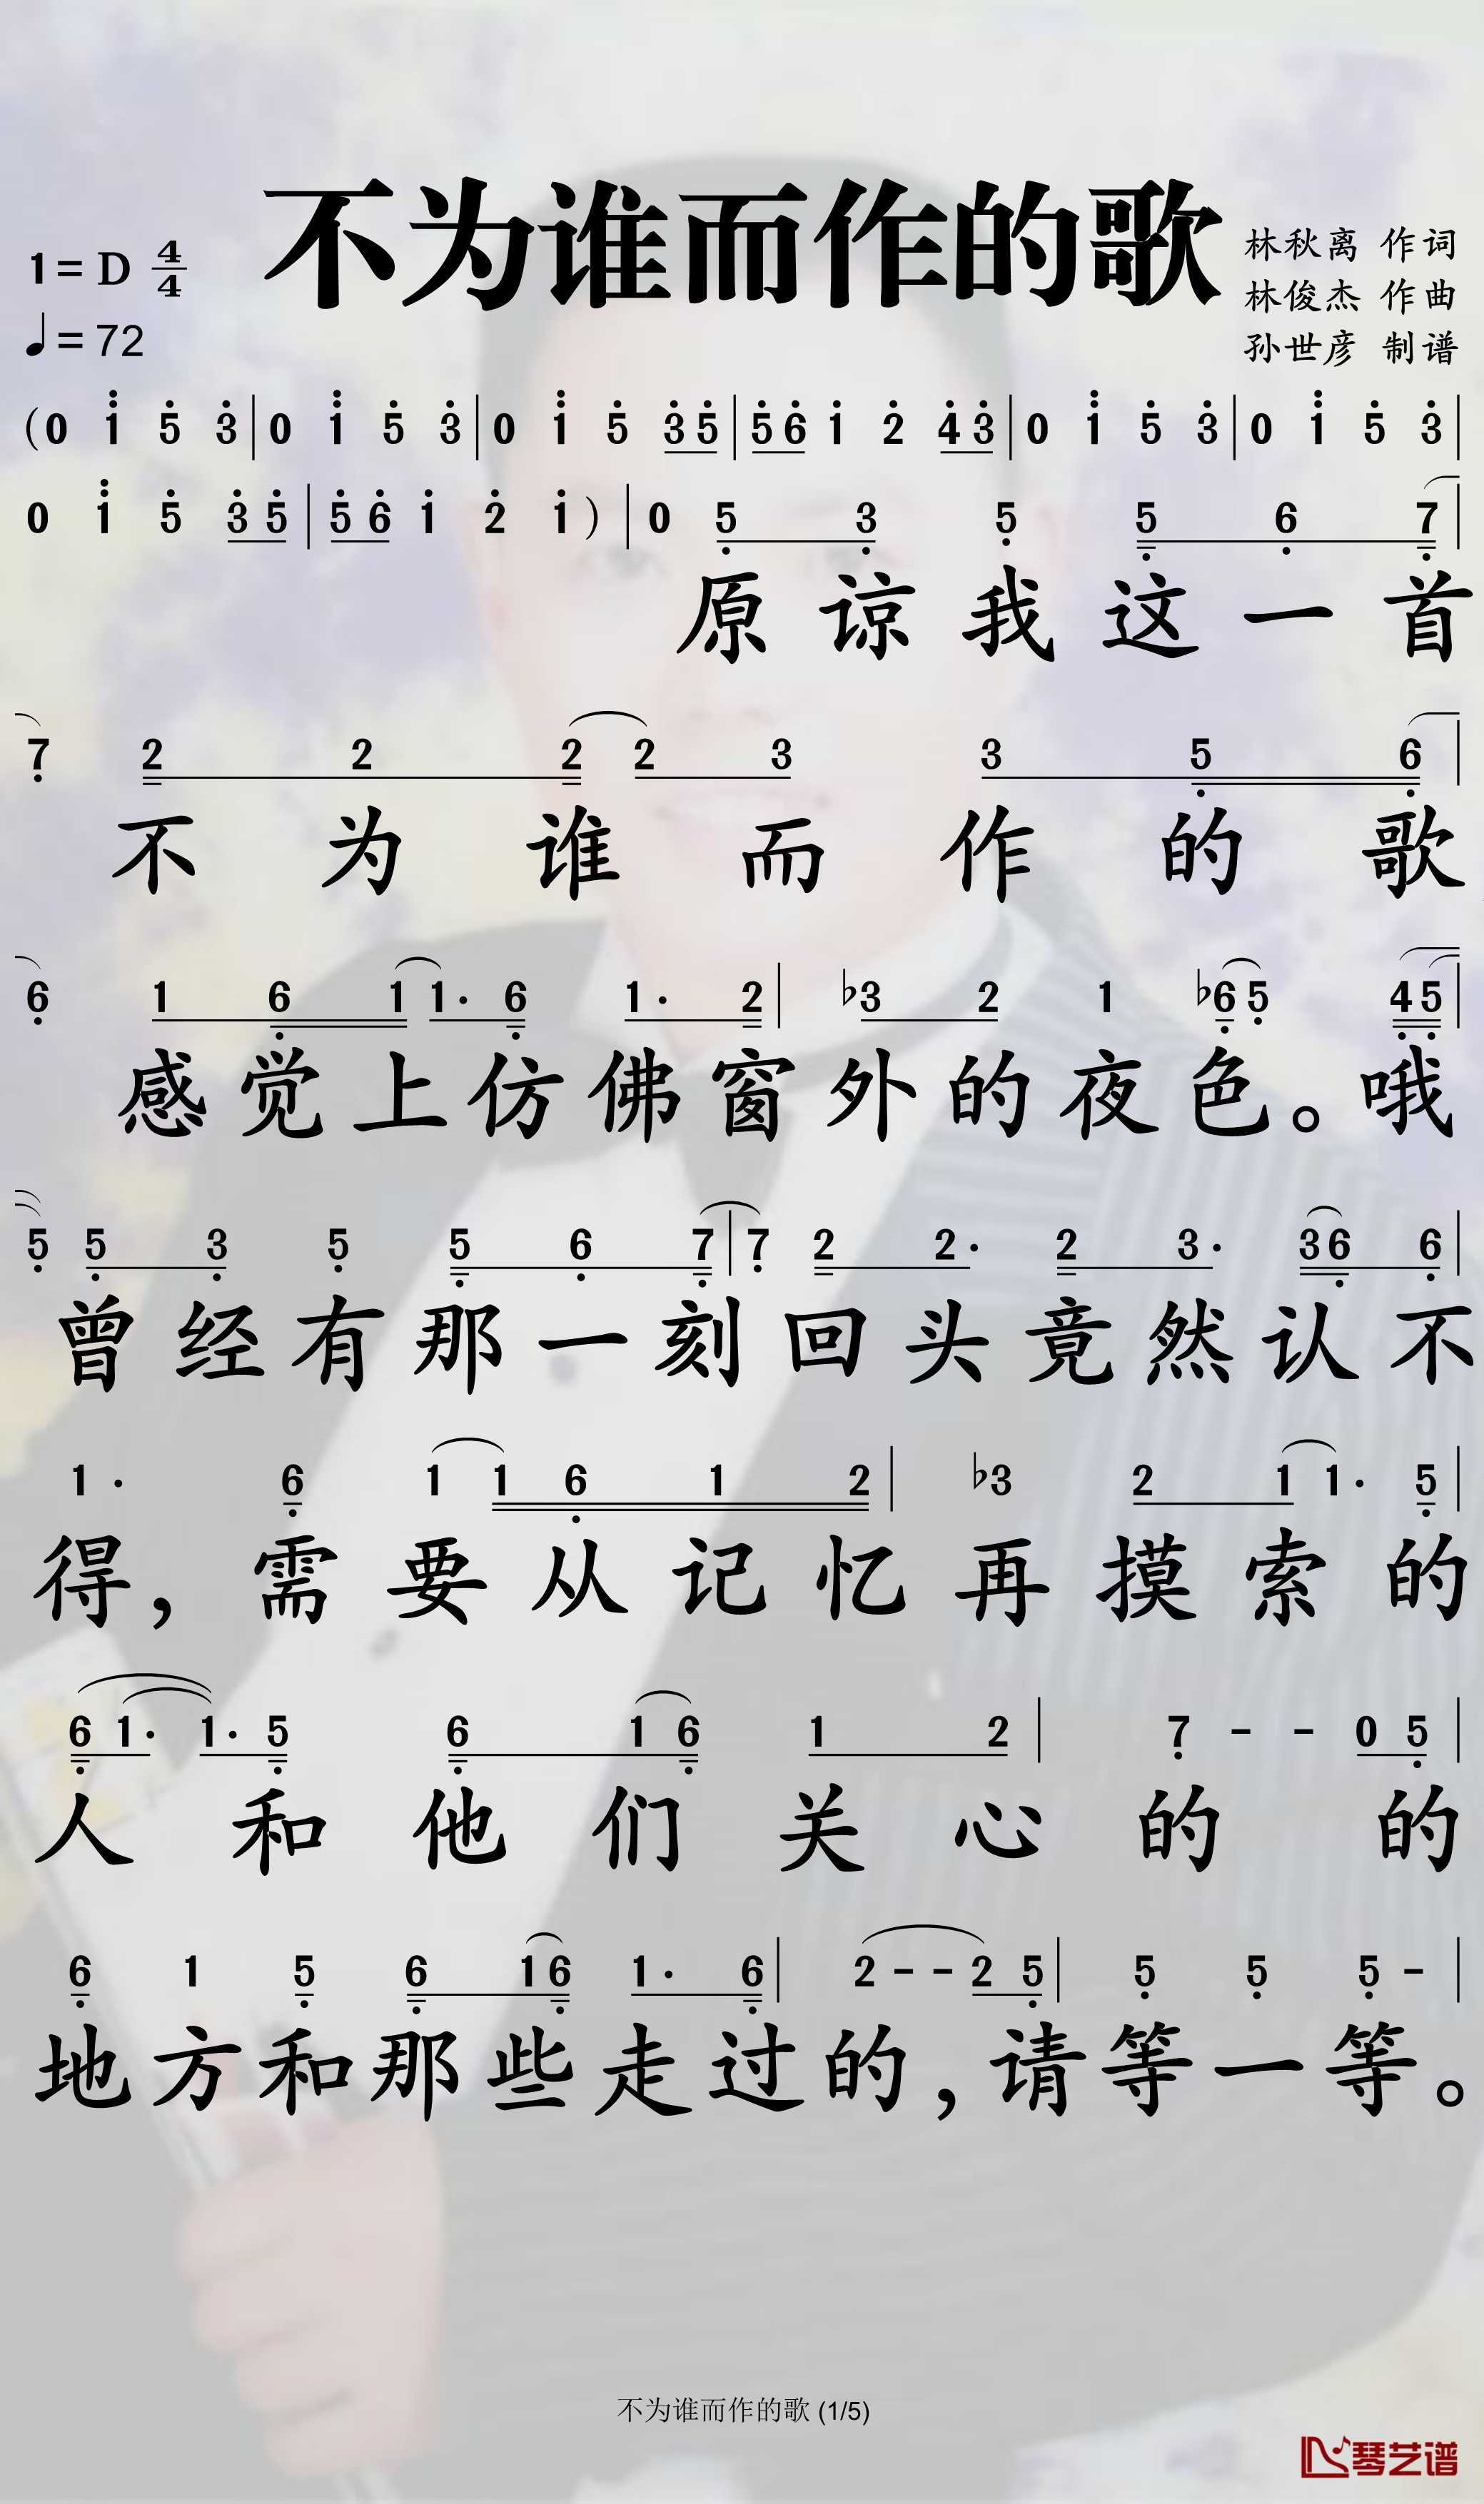 不为谁而作的歌
1= D 4/4
♩= 72
林秋离 作词
林俊杰 作曲
孙世彦 制谱
(0 1 5 3 | 0 1 5 3 | 0 1 5 3 5 | 5 6 1 2 4 3 | 0 1 5 3 | 0 1 5 3 |
0 1 5 3 5 | 5 6 1 2 1 ) | 0 5 3 5 5 6 7 |
原谅我这一首
7 2 2 2 2 3 3 5 6 |
不为谁而作的歌
6 1 6 1 1· 6 1· 2 | ♭3 2 1 ♭6 5 4 5 |
感觉上仿佛窗外的夜色。哦
5 5 3 5 5 6 7 | 7 2 2· 2 3· 3 6 6 |
曾经有那一刻回头竟然认不
1· 6 1 1 6 1 2 | ♭3 2 1 1· 5 |
得，需要从记忆再摸索的
6 1· 1· 5 6 1 6 1 2 | 7 - - 0 5 |
人和他们关心的的
6 1 5 6 1 6 1· 6 | 2 - - 2 5 | 5 5 5 - |
地方和那些走过的，请等一等。
不为谁而作的歌 (1/5)
琴艺谱